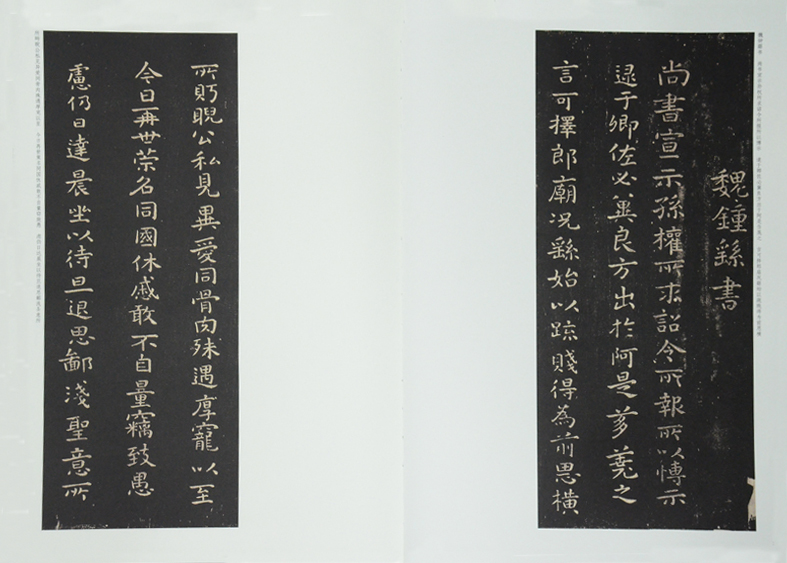 魏鍾繇書
尚書宣示孫權所求詔令所報所以博示
逮于卿佐必冀良方出於阿是芻蕘之
言可擇郎廟况繇始以疏賤得為前恩橫
所盻睨公私見異愛同骨肉殊遇厚寵以至
今日再世榮名同國休慼敢不自量竊致愚
慮仍日達晨坐以待旦退思鄙淺聖意所